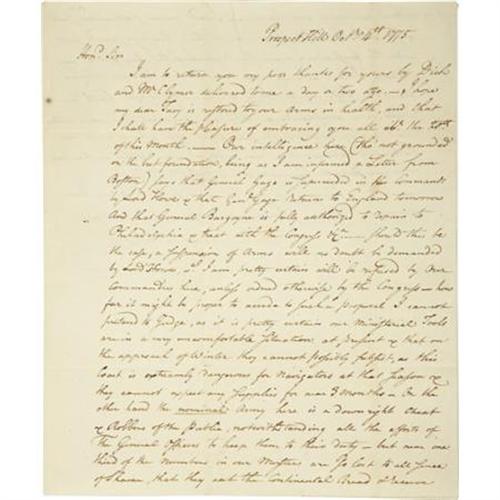 Prospect Hill Octr. 4th 1775
Hond. Sir
I am to return you my poor thanks for yours by Dick
and Mr Clymer delivered to me a day or two ago — I hope
my dear is restored to your Arms in health, and that
I shall have the pleasure of embracing you all abt. the 20th
of this Month. — Our intelligence here (tho' not grounded
on the best foundation, being as I am informed a Letter from
Boston) says that General Gage is superseded in the Command
by Lord Howe & that Genl. Gage returns to England tomorrow
And that General Burgoyne is fully authorized to repair to
Philadelphia & treat with the Congress &c — should this be
the case, a Suspension of Arms will no doubt be demanded
by Lord Howe, I am pretty certain will be refused by our
Commanders here, unless ordered otherwise by the Congress — how
far it might be proper to accede to such a proposal I cannot
pretend to Judge, as it is pretty certain our Ministerial Tools
are in a very uncomfortable Situation at present & that on
the approach of Winter they cannot possibly subsist, as this
Coast is extremely dangerous for Navigators at that Season &
they cannot expect any Supplies for near 3 months — On the
other hand the nominal Army here is a downright cheat
& Robbers of the Public, notwithstanding all the efforts of
the General Officers to keep them to their duty — but near one
third of the in our are so lost to all Sense
of Shame, that they eat the Continental Bread &